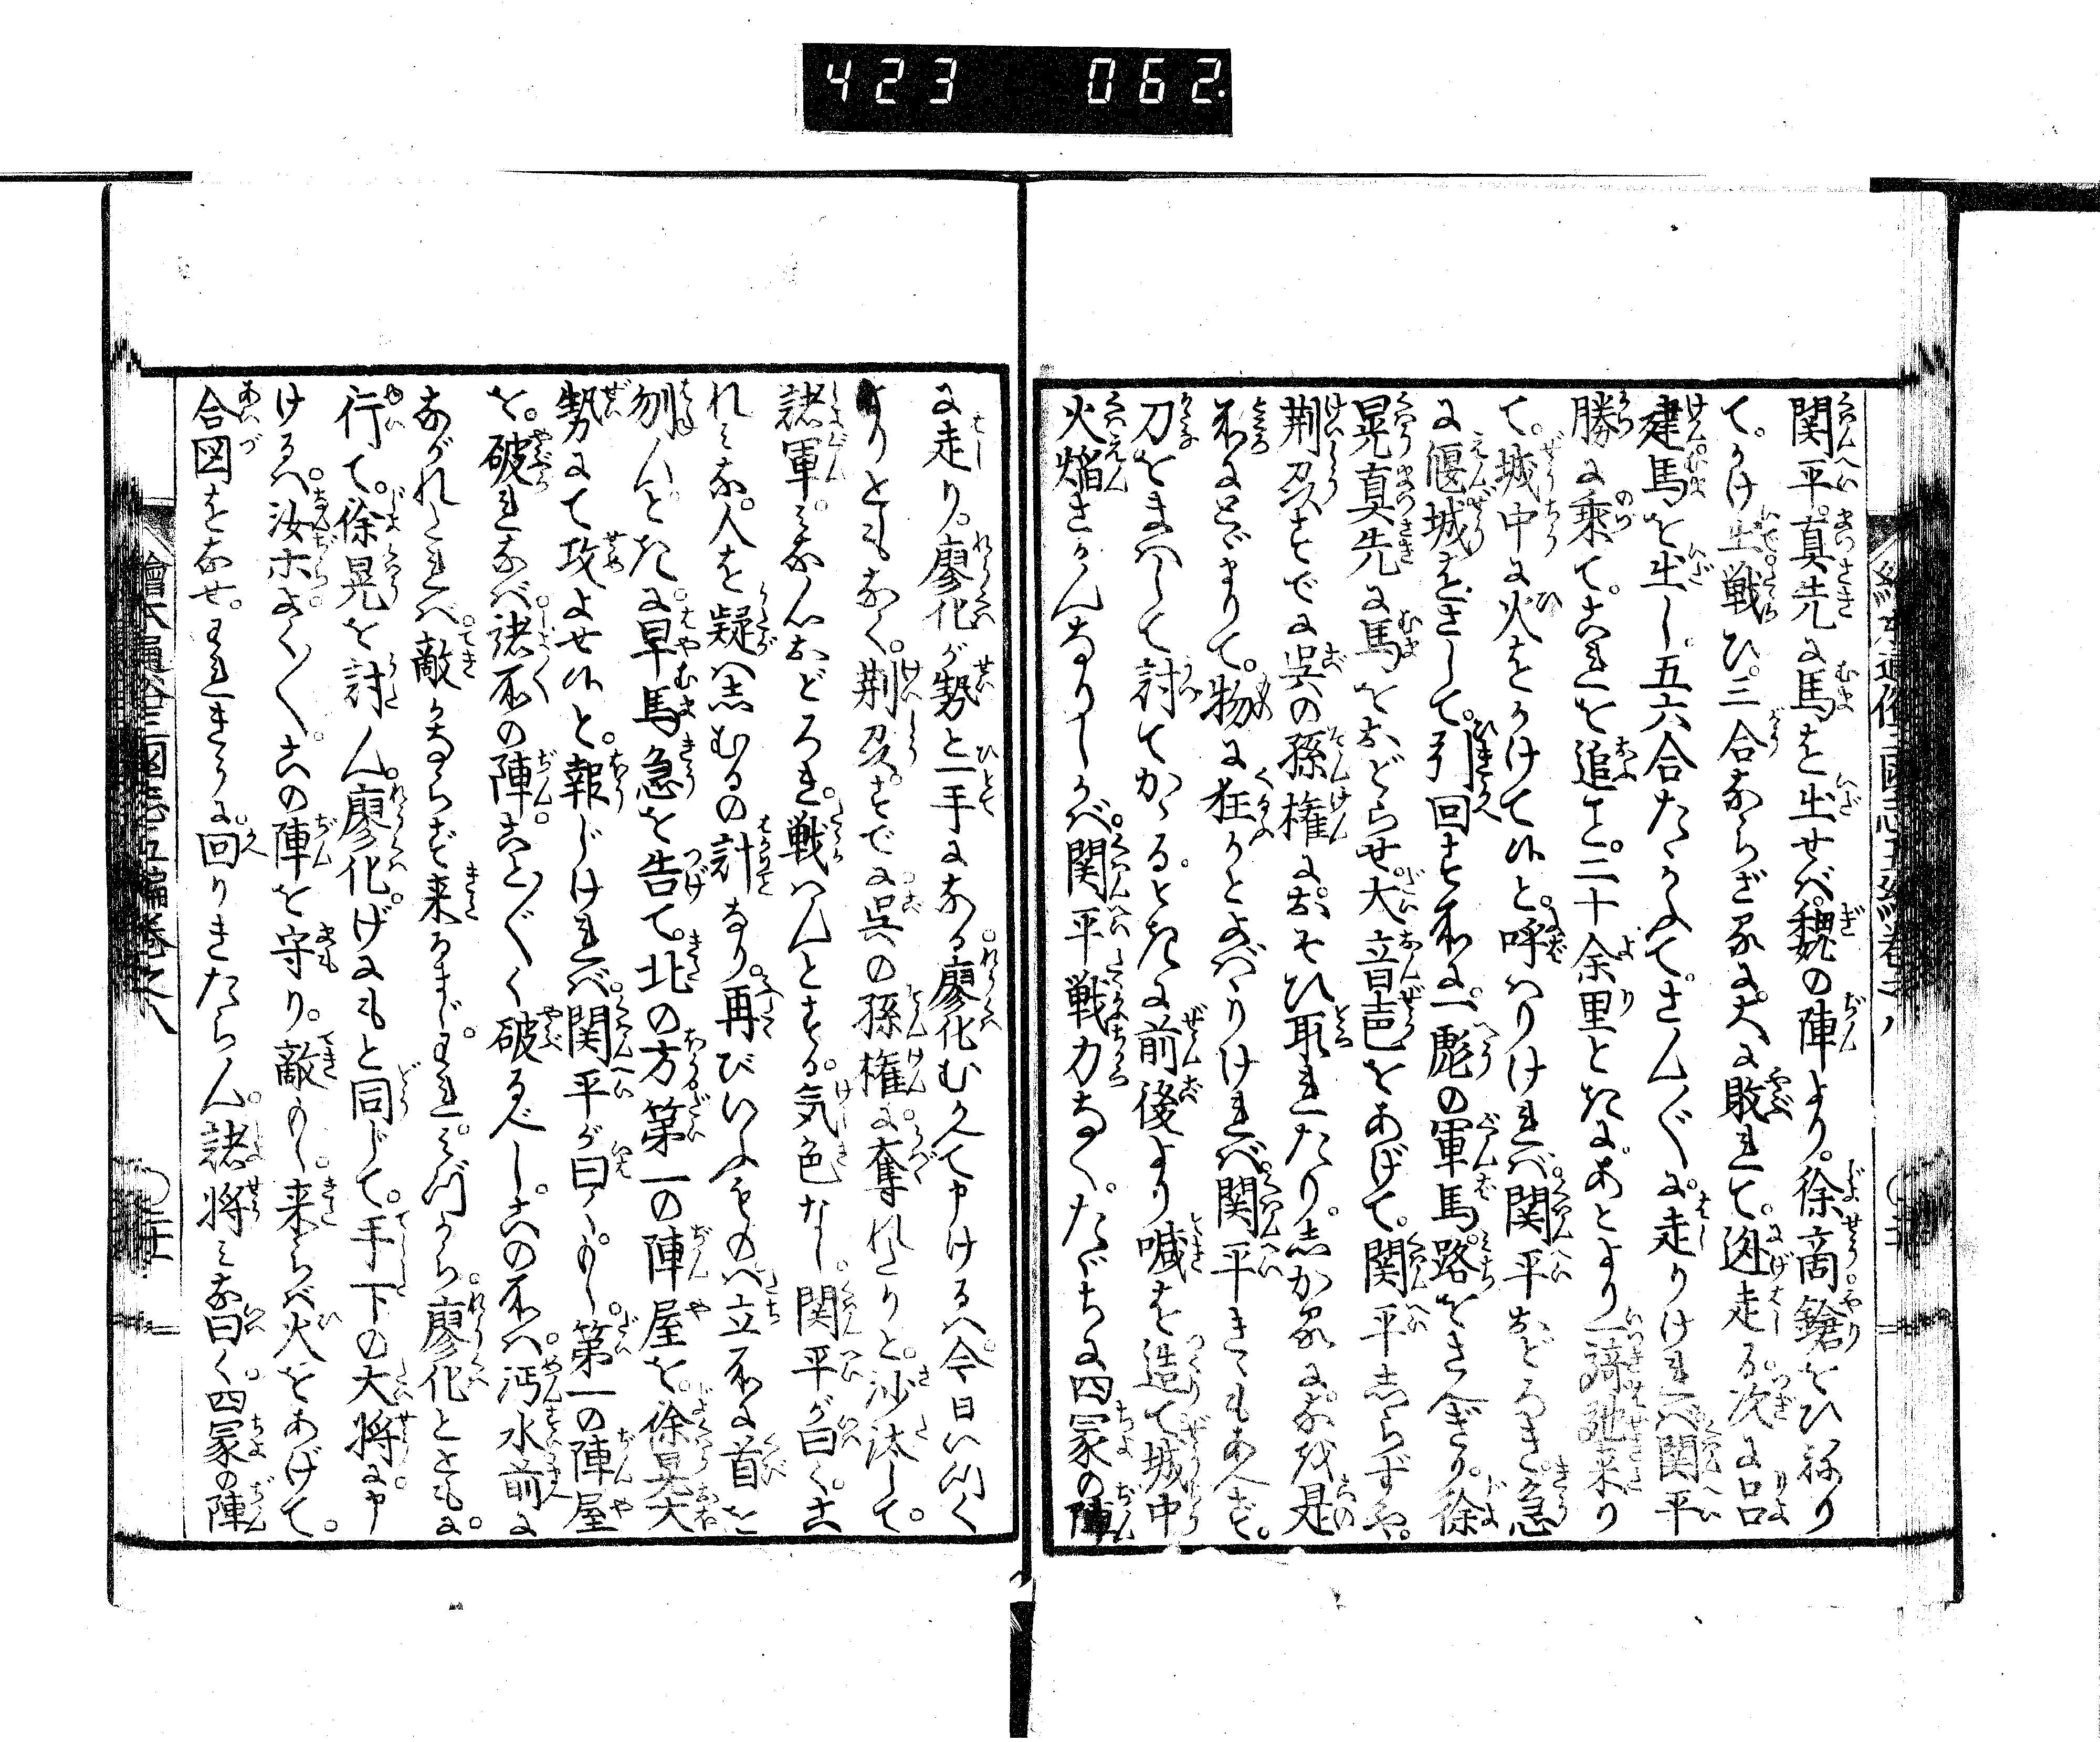 423 062.
関平真先に馬を出せば。魏の陣より。徐商鎗をひねり
て。かけ出戦ひ。三合ならざるに大に敗れて。逃走る。次に呂
建馬を出し。五六合たゝかふて。さん〲に走りければ関平
勝に乗て。これを追こと。二十余里ときに。あとより一騎馳来り
て。城中に火をかけて候と。呼はりければ。関平おどろき。急
に偃城をさして。引回す所に。一彪の軍馬。路をさへぎり。徐
晃真先に馬をおどらせ大音声をあげて。関平しらずや。
荊州すでに呉の孫権に。おそひ取れたり。しかるに。なを是
所にとゞまりて。物に狂かとよばゝりければ。関平きゝもあへず。
刀をまはして討てかゝる。ときに前後より喊を造て城中
火焔さかんなりしかば。関平戦力なく。たゞちに四冢の陣
に走り。廖化が勢と一手になる廖化むかへて申けるは。今日いづく
よりともなく。荊州。すでに呉の孫権に。奪れたりと。沙汰して。
諸軍。みな心おどろき。戦はんとする。気色なし。関平が曰く。こ
れみな。人を疑はしむるの計なり。再びいふものは立所に首を
刎んと。ときに早馬急を告て。北の方第一の陣屋を。徐晃大
勢にて攻よせ候と。報じければ。関平が曰く。もし。第一の陣屋
を。破れなば。諸所の陣。こと〲く破るべし。この所は。沔水前に
ながれたれば。敵かならず来るまじ。われ。みづから。廖化とともに。
行て。徐晃を討ん。廖化。げにもと同じて。手下の大将に申
けるは。汝ホよく〱。この陣を守り。敵もし。来らば火をあげて。
合図をなせ。われきうに。回りきたらん。諸将みな曰く。四冢の陣
繪本通俗三國志五編卷之八